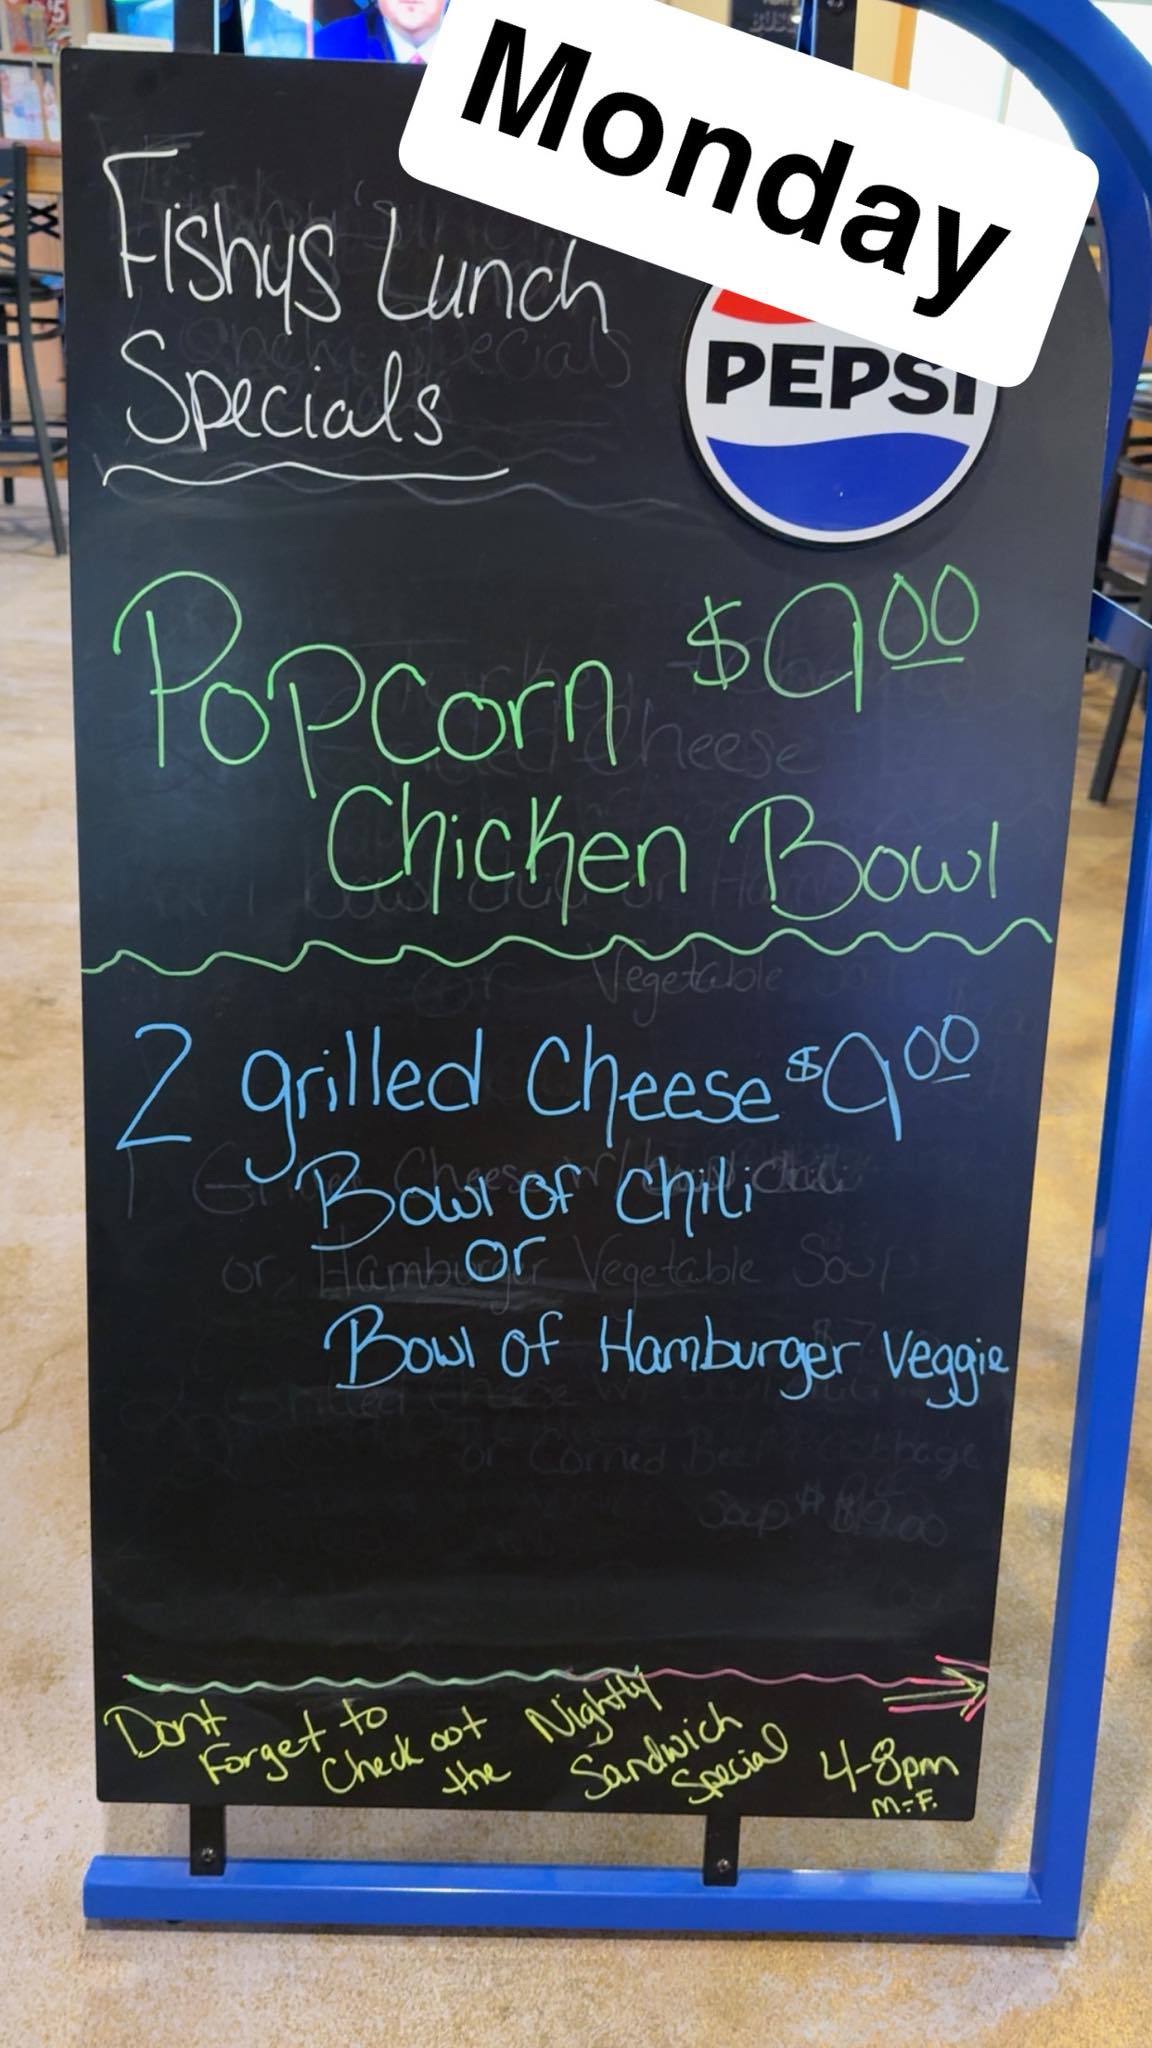 Monday
Fishys Lunch
Specials
PEPSI
Popcorn $9.00
Chicken Bowl
2 grilled Cheese $9.00
Bowl of Chili
or
Bowl of Hamburger Veggie
Dont Forget to Check out the Nightly Sandwich Special 4-8pm
M.-F.